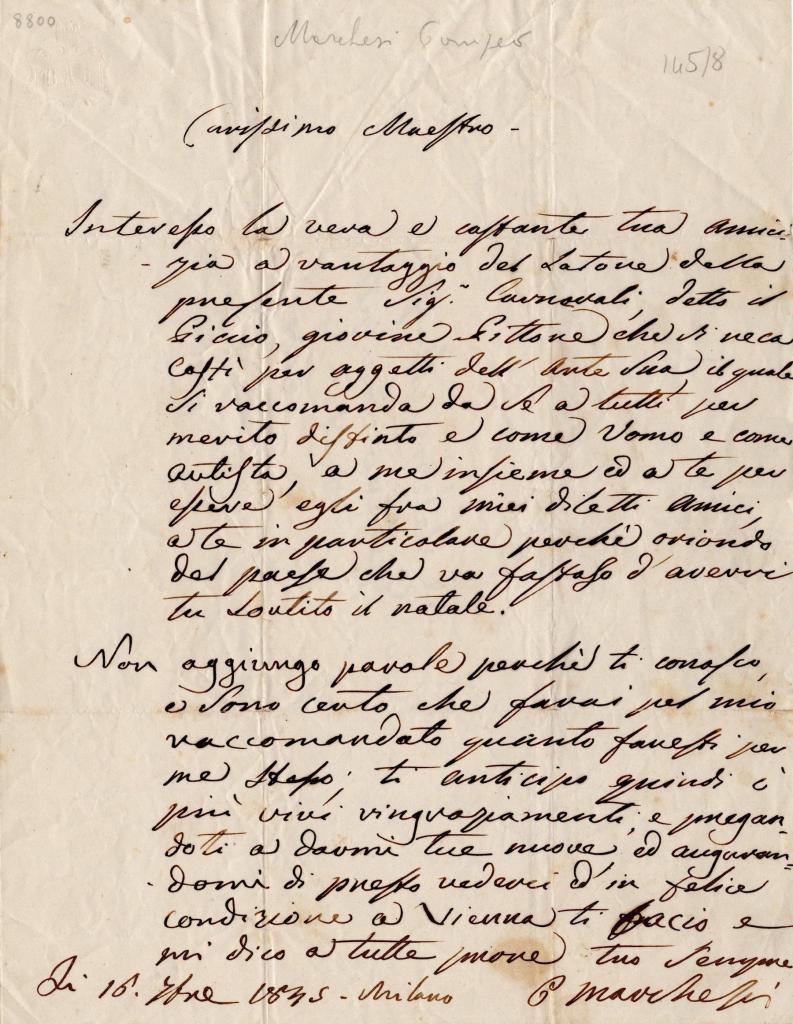 8800
Marchesi Pompeo
145/8
Carissimo Maestro -
Interesso la vera e costante tua amici=
-zia a vantaggio del Latore della
presente Sig.r Carnovali, detto il
Piccio, giovine Pittore che si reca
Costì per oggetti dell'Arte Sua, il quale
si raccomanda da Sè a tutti per
merito distinto e come Uomo e come
artista, a me insieme ed a te per
essere egli fra miei diletti amici,
a te in particolare perchè oriondo
del paese che va fastoso d'avervi
tu Sortito il natale.
Non aggiungo parole perchè ti conosco,
e Sono certo che farai pel mio
raccomandato quanto faresti per
me Stesso; ti anticipo quindi i
più vivi ringraziamenti, e pregan-
doti a darmi tue nuove, ed auguran=
domi di presto vederci ed in felice
condizione a Vienna ti bacio e
mi dico a tutte prove tuo Sempre
Li 16. 7bre 1845 - Milano P Marchesi